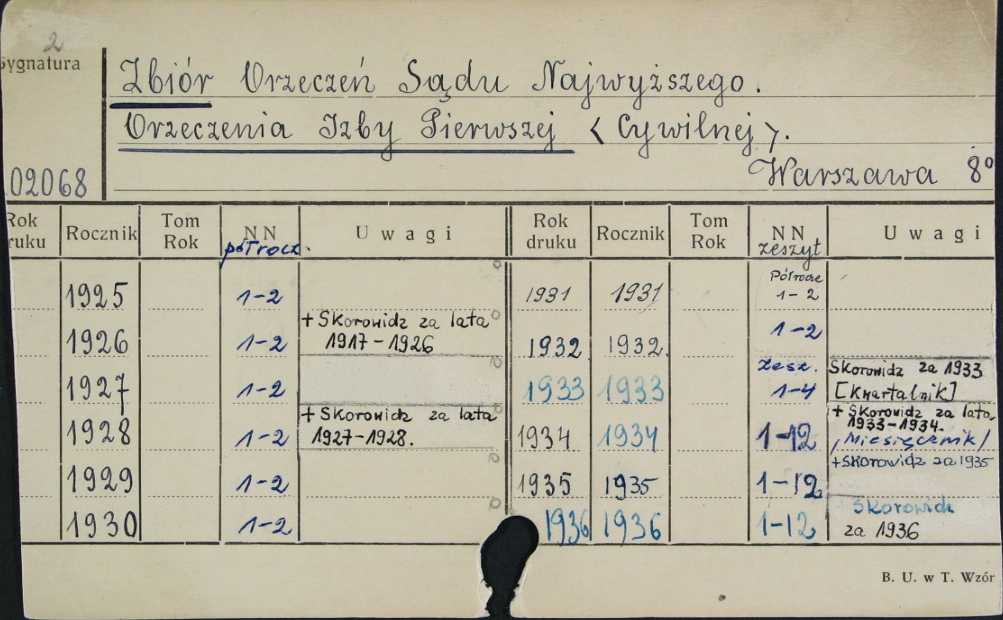 2
Sygnatura
Zbiór Orzeczeń Sądu Najwyższego.
Orzeczenia Izby Pierwszej < Cywilnej >.
02068
Warszawa 8°
Rok druku Rocznik Tom Rok NN półrocz. Uwagi Rok druku Rocznik Tom Rok NN zeszyt Uwagi
1925 1-2 1931 1931 Półrocze 1-2
1926 1-2 + Skorowidz za lata 1917-1926 1932 1932. 1-2
1927 1-2 1933 1933 zesz. 1-4 Skorowidz za 1933 [Kwartalnik]
1928 1-2 + Skorowidz za lata 1927-1928. 1934 1934 1-12 + Skorowidz za lata 1933-1934. /Miesięcznik/
1929 1-2 1935 1935 1-12 + Skorowidz za 1935
1930 1-2 1936 1936 1-12 Skorowidz za 1936
B. U. w T. Wzór